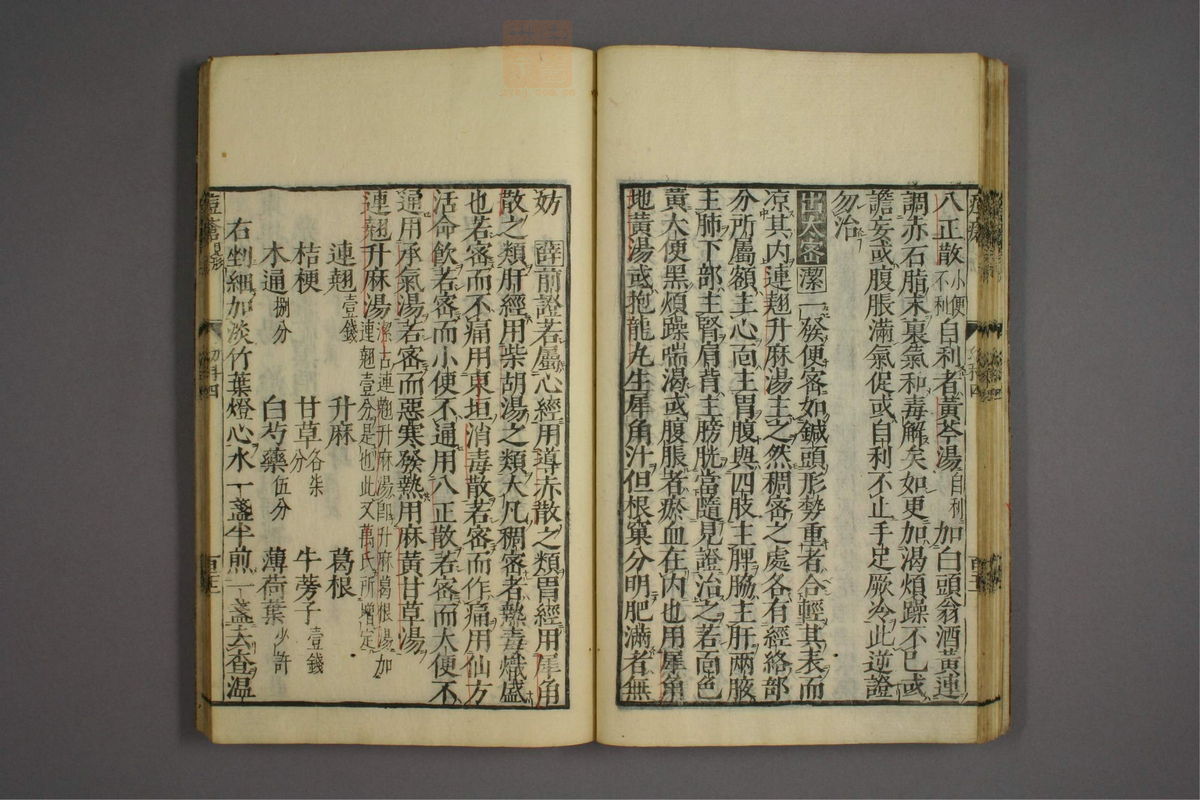 八正散小便不利自利者黃芩湯自利加白頭翁酒黃連
調赤石脂末裏氣和毒解矣如更加渴煩躁不已或
譫妄或腹脹滿氣促或自利不止手足厥冷此逆證
勿治
出太密 潔 一發便密如鍼頭形勢重者合輕其表而
凉其内連翹升麻湯主之然稠密之處各有經絡部
分所屬額主心面主胃腹與四肢主脾脇主肝兩腋
主肺下部主腎肩背主膀胱當隨見證治之若面色
黃大便黑煩躁喘渴或腹脹者瘀血在内也用犀角
地黃湯或抱龍丸生犀角汁但根窠分明肥滿者無
妨 薛 前證若屬心經用導赤散之類胃經用犀角
散之類肝經用柴胡湯之類大凡稠密者熱毒熾盛
也若密而不痛用東垣消毒散若密而作痛用仙方
活命飲若密而小便不通用八正散若密而大便不
通用承氣湯若密而惡寒發熱用麻黃甘草湯
連翹升麻湯潔古連翹升麻湯卽升麻葛根湯加連翹壹分是也此又萬氏所增定
連翹壹錢 升麻 葛根
桔梗 甘草各柒分 牛蒡子壹錢
木通捌分 白芍藥伍分 薄荷葉少許
右剉細加淡竹葉燈心水一盞半煎一盞去查温
痘瘡見形
幼科四